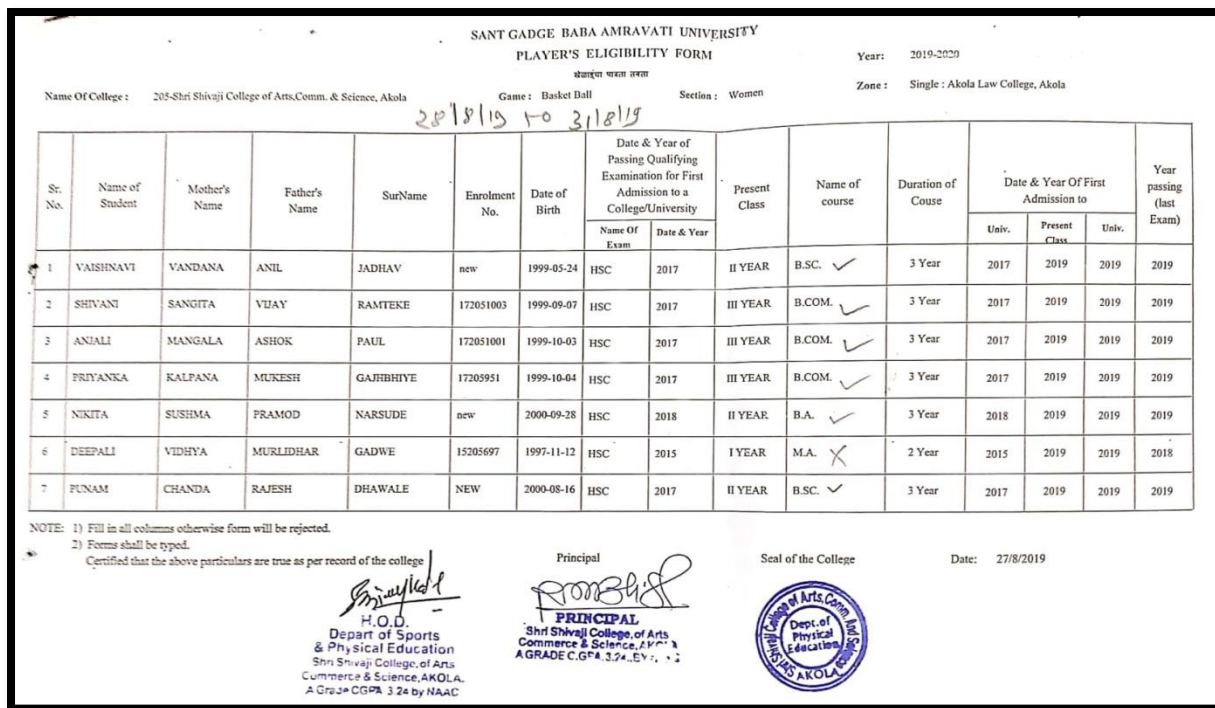 SANT GADGE BABA AMRAVATI UNIVERSITY
PLAYER'S ELIGIBILITY FORM
Year: 2019-2020
खेळाडूंचा पात्रता तक्ता
Zone : Single : Akola Law College, Akola
Name Of College : 205-Shri Shivaji College of Arts,Comm. & Science, Akola Game : Basket Ball Section : Women
28/8/19 to 31/8/19
Sr. No. Name of Student Mother's Name Father's Name SurName Enrolment No. Date of Birth Date & Year of Passing Qualifying Examination for First Admission to a College/University Present Class Name of course Duration of Couse Date & Year Of First Admission to Year passing (last Exam)
Name Of Exam Date & Year Univ. Present Class Univ.
1 VAISHNAVI VANDANA ANIL JADHAV new 1999-05-24 HSC 2017 II YEAR B.SC. ✓ 3 Year 2017 2019 2019 2019
2 SHIVANI SANGITA VIJAY RAMTEKE 172051003 1999-09-07 HSC 2017 III YEAR B.COM. ✓ 3 Year 2017 2019 2019 2019
3 ANJALI MANGALA ASHOK PAUL 172051001 1999-10-03 HSC 2017 III YEAR B.COM. ✓ 3 Year 2017 2019 2019 2019
4 PRIYANKA KALPANA MUKESH GAJHBHIYE 17205951 1999-10-04 HSC 2017 III YEAR B.COM. ✓ 3 Year 2017 2019 2019 2019
5 NIKITA SUSHMA PRAMOD NARSUDE new 2000-09-28 HSC 2018 II YEAR B.A. ✓ 3 Year 2018 2019 2019 2019
6 DEEPALI VIDHYA MURLIDHAR GADWE 15205697 1997-11-12 HSC 2015 I YEAR M.A. X 2 Year 2015 2019 2019 2018
7 PUNAM CHANDA RAJESH DHAWALE NEW 2000-08-16 HSC 2017 II YEAR B.SC. ✓ 3 Year 2017 2019 2019 2019
NOTE: 1) Fill in all columns otherwise form will be rejected.
2) Forms shall be typed.
Certified that the above particulars are true as per record of the college
Principal Seal of the College Date: 27/8/2019
H.O.D.
Depart of Sports
& Physical Education
Shri Shivaji College, of Arts
Commerce & Science, AKOLA.
A Grade CGPA 3.24 by NAAC
PRINCIPAL
Shri Shivaji College, of Arts
Commerce & Science,
A GRADE C.GPA.3.24
Shivaji College of Arts, Comm. And Science
Dept. of
Physical
Education
AKOLA